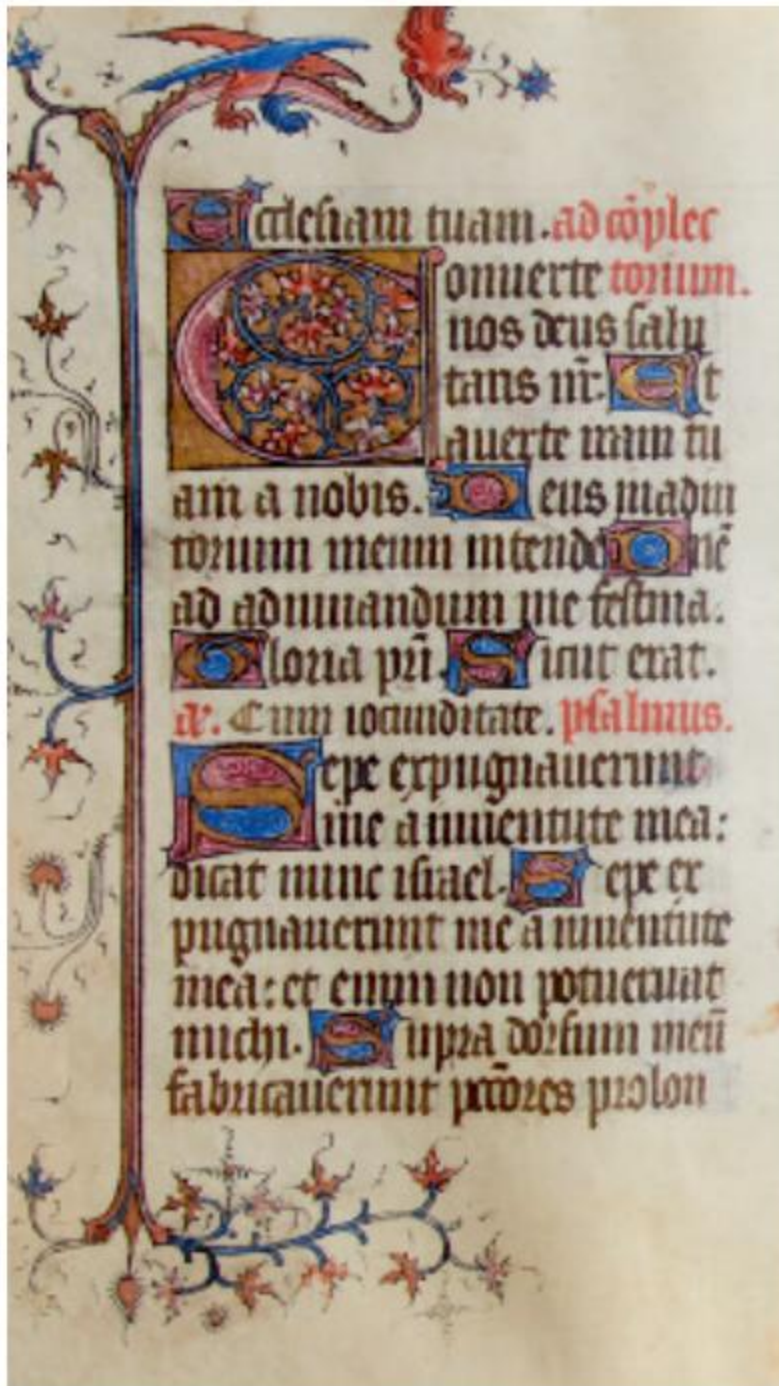 Ecclesiam tuam. ad cōplec
Conuerte torium.
nos deus salu
taris nr̄. Et
auerte iram tu
am a nobis. Deus in adiu
torium meum intende Dn̄e
ad adiuuandum me festina.
Gloria pr̄i. Sicut erat.
a. Cum iocunditate. psalmus.
Sepe expugnauerunt
me a iuuentute mea:
dicat nunc israel. Sepe ex
pugnauerunt me a iuuentute
mea: et enim non potuerunt
michi. Supra dorsum meū
fabricauerunt pctōres prolon